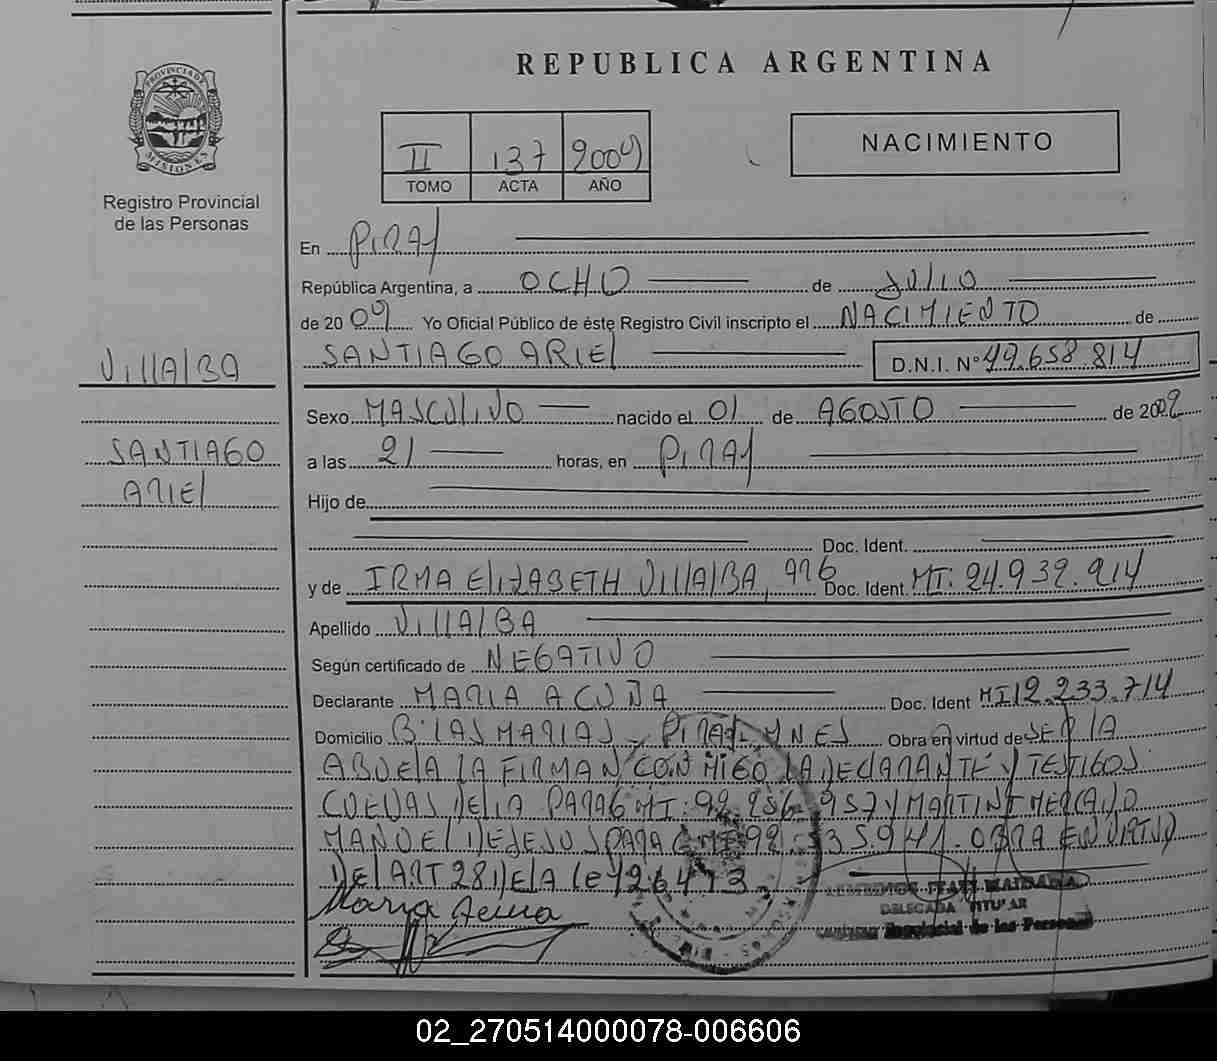 REPUBLICA ARGENTINA
PROVINCIA DE MISIONES
Registro Provincial
de las Personas
II 137 2009
TOMO ACTA AÑO
NACIMIENTO
En PIRAY
República Argentina, a OCHO de JULIO
de 2009 Yo Oficial Público de éste Registro Civil inscripto el NACIMIENTO de
VILLALBA
SANTIAGO ARIEL D.N.I. Nº 49.658.814
Sexo MASCULINO nacido el 01 de AGOSTO de 2002
SANTIAGO
ARIEL
a las 21 horas, en PIRAY
Hijo de
Doc. Ident.
y de IRMA ELIZABETH VILLALBA, Doc. Ident MI: 24.932.914
Apellido VILLALBA
Según certificado de NEGATIVO
Declarante MARIA ACUÑA Doc. Ident MI 12.233.714
Domicilio Bº LAS MARIAS - PIRAY MNES Obra en virtud de SER LA
ABUELA LA FIRMAN CONMIGO LA DECLARANTE Y TESTIGOS
CUEVAS DELIA PARAG MI: 92.256.957 Y MARTINEZ MERCADO
MANUEL DE JESUS PARAG MI 92 35.941. OBRA EN VIRTUD
DEL ART 28 DE LA LEY 26413.
Maria Acuna
DELEGADA TITULAR
Provincial de las Personas
02_270514000078-006606